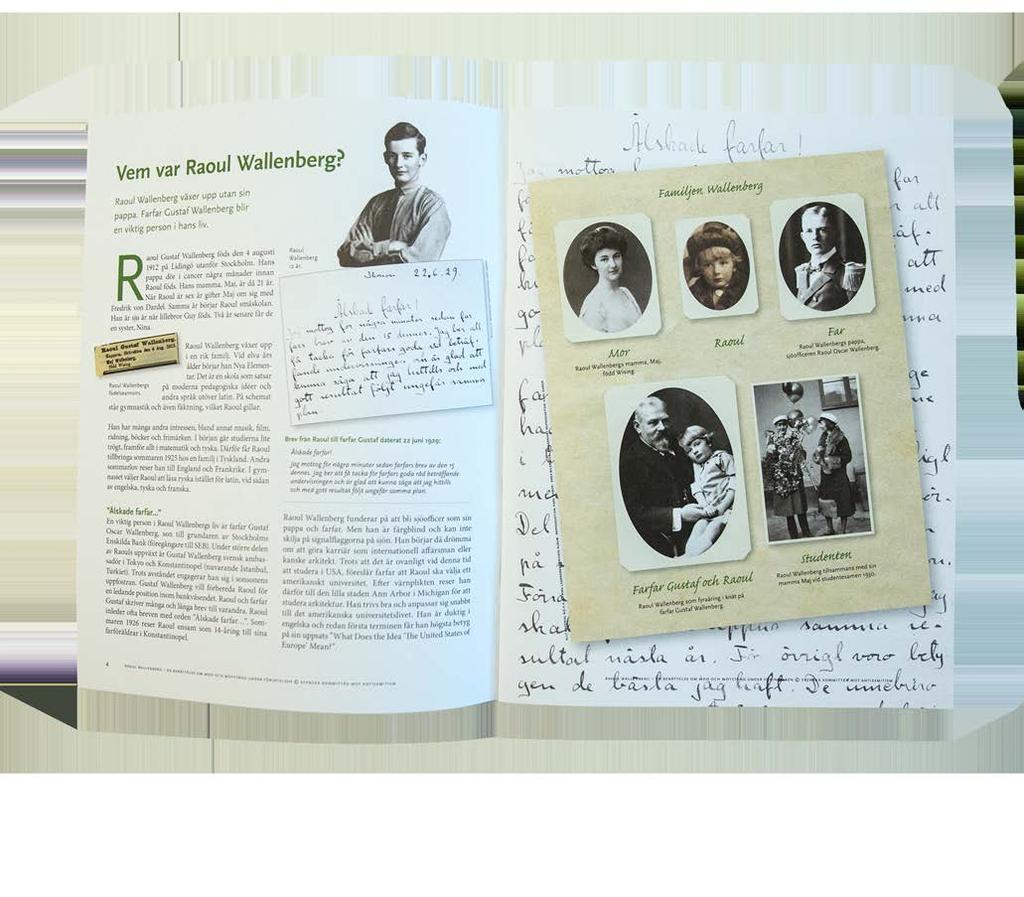 Vem var Raoul Wallenberg?
Raoul Wallenberg växer upp utan sin
pappa. Farfar Gustaf Wallenberg blir
en viktig person i hans liv.
Raoul Gustaf Wallenberg föds den 4 augusti
1912 på Lidingö utanför Stockholm. Hans
pappa dör i cancer några månader innan
Raoul föds. Hans mamma, Maj, är då 21 år.
När Raoul är sex år gifter Maj om sig med
Fredrik von Dardel. Samma år börjar Raoul småskolan.
Han är sju år när lillebror Guy föds. Två år senare får de
en syster, Nina.
Raoul Gustaf Wallenberg.
Maj Wallenberg,
född Wising.
Raoul Wallenbergs
födelseannons.
Raoul Wallenberg växer upp
i en rik familj. Vid elva års
ålder börjar han Nya Elemen-
tar. Det är en skola som satsar
på moderna pedagogiska idéer och
andra språk utöver latin. På schemat
står gymnastik och även fäktning, vilket Raoul gillar.
Han har många andra intressen, bland annat musik, film,
ridning, böcker och frimärken. I början går studierna lite
trögt, framför allt i matematik och tyska. Därför får Raoul
tillbringa sommaren 1925 hos en familj i Tyskland. Andra
sommarlov reser han till England och Frankrike. I gym-
nasiet väljer Raoul att läsa ryska istället för latin, vid sidan
av engelska, tyska och franska.
"Älskade farfar..."
En viktig person i Raoul Wallenbergs liv är farfar Gustaf
Oscar Wallenberg, son till grundaren av Stockholms
Enskilda Bank (föregångare till SEB). Under större delen
av Raouls uppväxt är Gustaf Wallenberg svensk ambas-
sadör i Tokyo och Konstantinopel (nuvarande Istanbul,
Turkiet). Trots avståndet engagerar han sig i sonsonens
uppfostran. Gustaf Wallenberg vill förbereda Raoul för
en ledande position inom bankväsendet. Raoul och farfar
Gustaf skriver många och långa brev till varandra. Raoul
inleder ofta breven med orden "Älskade farfar...". Som-
maren 1926 reser Raoul ensam som 14-åring till sina
farföräldrar i Konstantinopel.
Raoul
Wallenberg
12 år.
22.6.29.
Älskade farfar!
Jag mottog för några minuter sedan far-
fars brev av den 15 dennes. Jag ber att
få tacka för farfars goda råd beträf-
fande undervisningen och är glad att
kunna säga att jag hittills och med
gott resultat följt ungefär samma
plan.
Brev från Raoul till farfar Gustaf daterat 22 juni 1929:
Älskade farfar!
Jag mottog för några minuter sedan farfars brev av den 15
dennes. Jag ber att få tacka för farfars goda råd beträffande
undervisningen och är glad att kunna säga att jag hittills
och med gott resultat följt ungefär samma plan.
Raoul Wallenberg funderar på att bli sjöofficer som sin
pappa och farfar. Men han är färgblind och kan inte
skilja på signalflaggorna på sjön. Han börjar då drömma
om att göra karriär som internationell affärsman eller
kanske arkitekt. Trots att det är ovanligt vid denna tid
att studera i USA, föreslår farfar att Raoul ska välja ett
amerikanskt universitet. Efter värnplikten reser han
därför till den lilla staden Ann Arbor i Michigan för att
studera arkitektur. Han trivs bra och anpassar sig snabbt
till det amerikanska universitetslivet. Han är duktig i
engelska och redan första terminen får han högsta betyg
på sin uppsats "What Does the Idea 'The United States of
Europe' Mean?".
4 RAOUL WALLENBERG – EN BERÄTTELSE OM MOD OCH MOTSTÅND UNDER FÖRINTELSEN © SVENSKA KOMMITTÉN MOT ANTISEMITISM
Älskade farfar!
Jag mottog
far
att
med
Familjen Wallenberg
Mor
Raoul Wallenbergs mamma, Maj,
född Wising.
Raoul
Far
Raoul Wallenbergs pappa,
sjöofficeren Raoul Oscar Wallenberg.
Farfar Gustaf och Raoul
Raoul Wallenberg som fyraåring i knät på
farfar Gustaf Wallenberg.
Studenten
Raoul Wallenberg tillsammans med sin
mamma Maj vid studentexamen 1930.
Del
på
samma re-
sultat nästa år. För övrigt voro bety-
gen de bästa jag haft. De